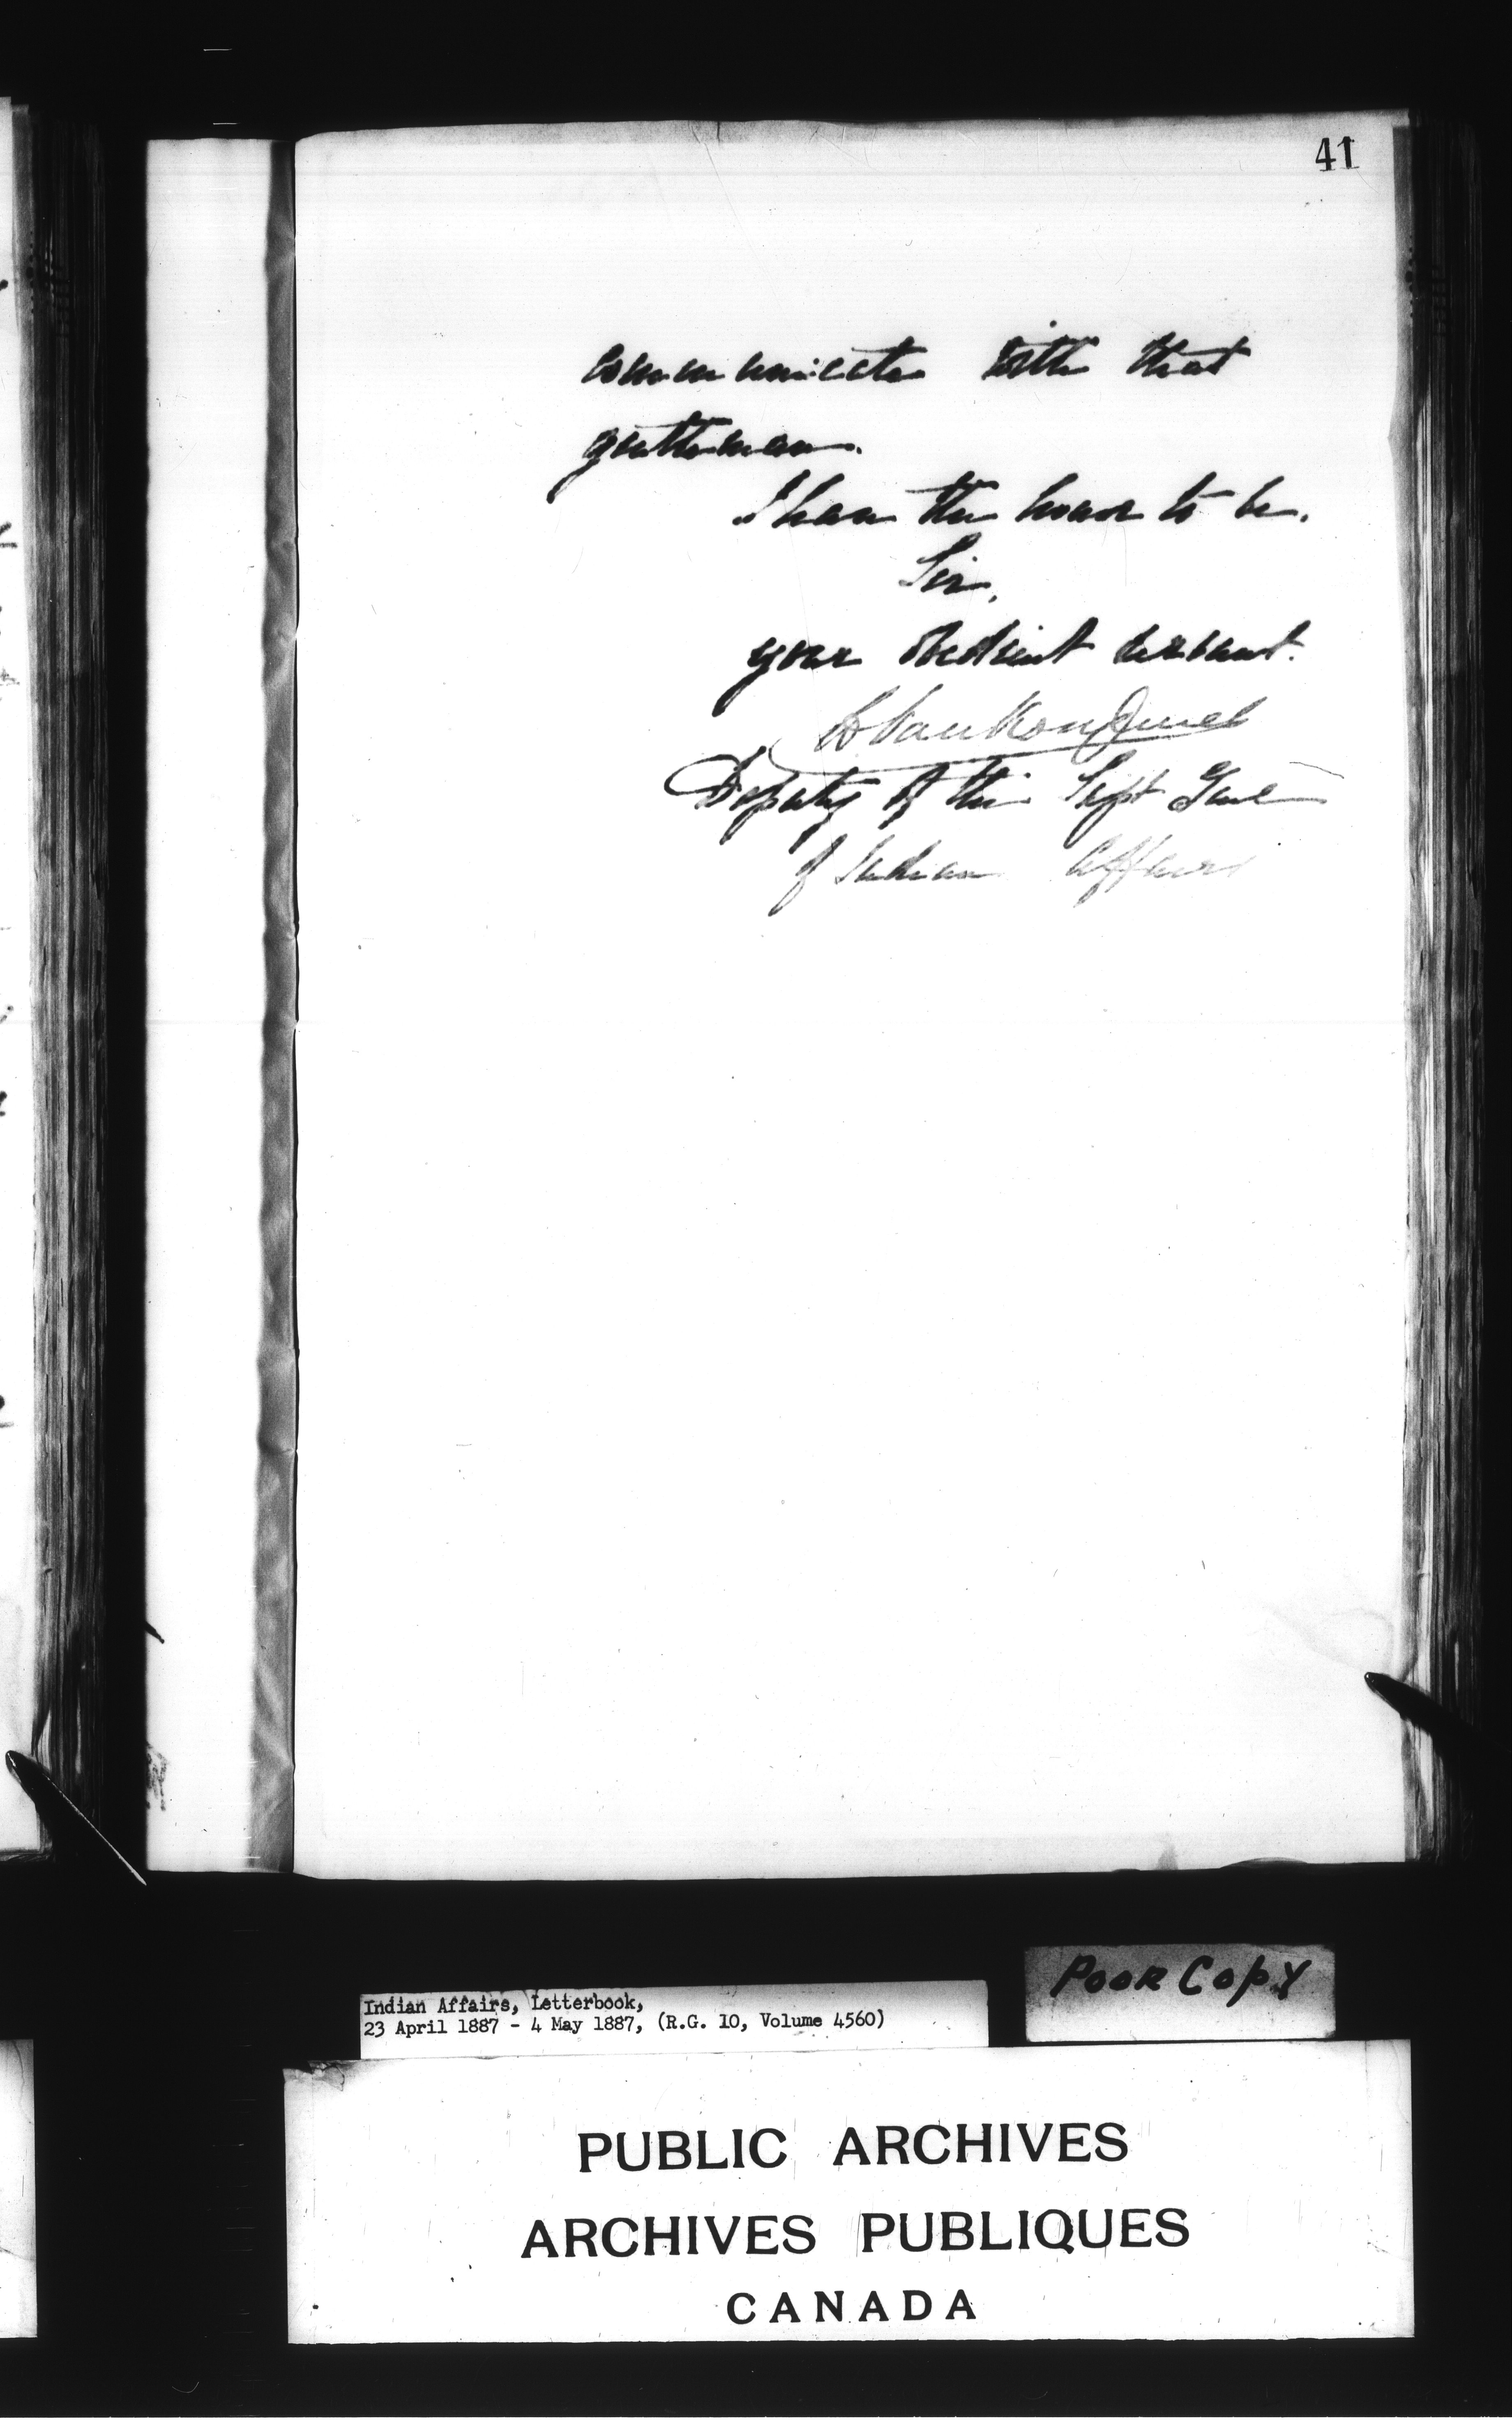 41
communicate with that
gentleman.
I have the honor to be.
Sir,
your obedient servant.
L VanKoughnet
Deputy of the Supt Genl
of Indian Affairs
Poor Copy
Indian Affairs, Letterbook,
23 April 1887 - 4 May 1887, (R.G. 10, Volume 4560)
PUBLIC ARCHIVES
ARCHIVES PUBLIQUES
CANADA